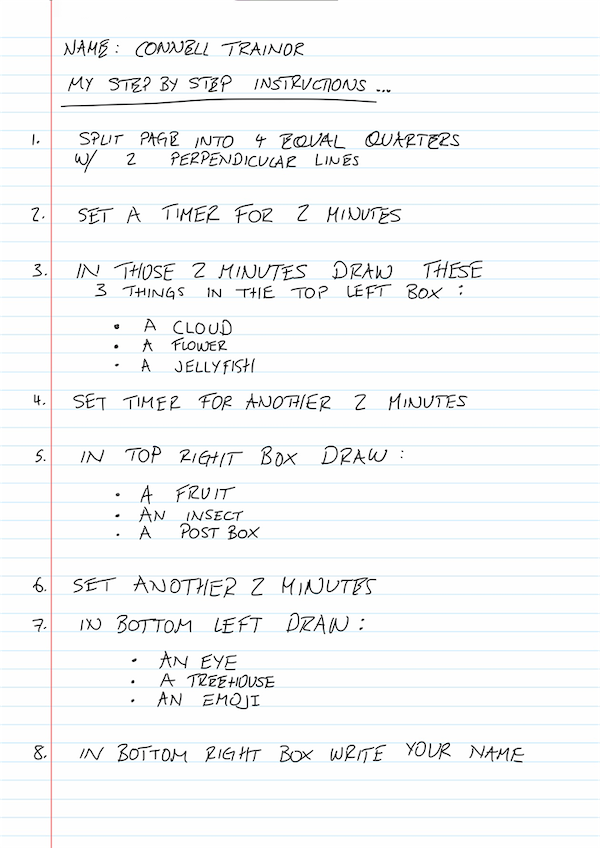 NAME: CONNELL TRAINOR
MY STEP BY STEP INSTRUCTIONS...
1. SPLIT PAGE INTO 4 EQUAL QUARTERS
W/ 2 PERPENDICULAR LINES
2. SET A TIMER FOR 2 MINUTES
3. IN THOSE 2 MINUTES DRAW THESE
3 THINGS IN THE TOP LEFT BOX:
• A CLOUD
• A FLOWER
• A JELLYFISH
4. SET TIMER FOR ANOTHER 2 MINUTES
5. IN TOP RIGHT BOX DRAW:
• A FRUIT
• AN INSECT
• A POST BOX
6. SET ANOTHER 2 MINUTES
7. IN BOTTOM LEFT DRAW:
• AN EYE
• A TREEHOUSE
• AN EMOJI
8. IN BOTTOM RIGHT BOX WRITE YOUR NAME